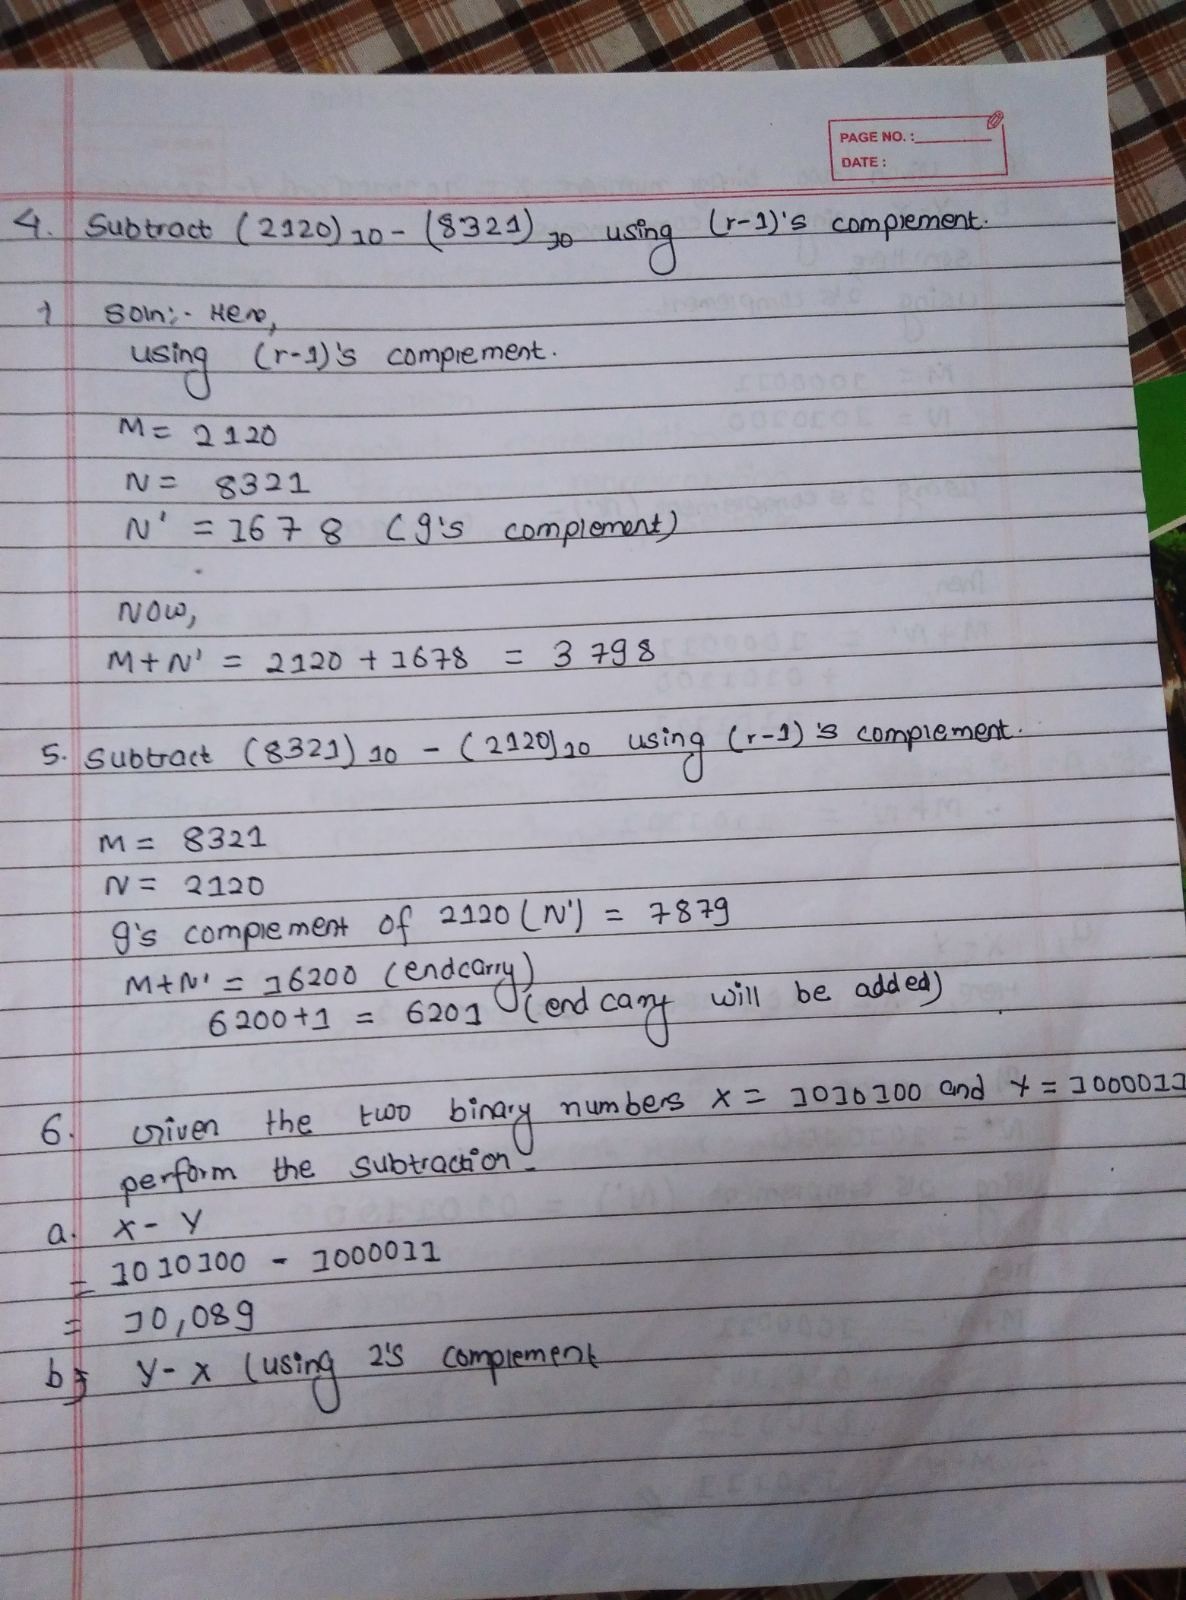 PAGE NO. :
DATE :
4. Subtract (2120)10 - (8321)10 using (r-1)'s complement.
Soln:- Here,
using (r-1)'s complement.
M = 2120
N = 8321
N' = 1678 (9's complement)
Now,
M+N' = 2120 + 1678 = 3798
5. Subtract (8321)10 - (2120)10 using (r-1)'s complement.
M = 8321
N = 2120
9's complement of 2120 (N') = 7879
M+N' = 16200 (endcarry)
6200+1 = 6201 (end carry will be added)
6. Given the two binary numbers x = 1010100 and y = 1000011
perform the subtraction.
a. x - y
= 1010100 - 1000011
= 10,089
b) y - x (using 2's complement